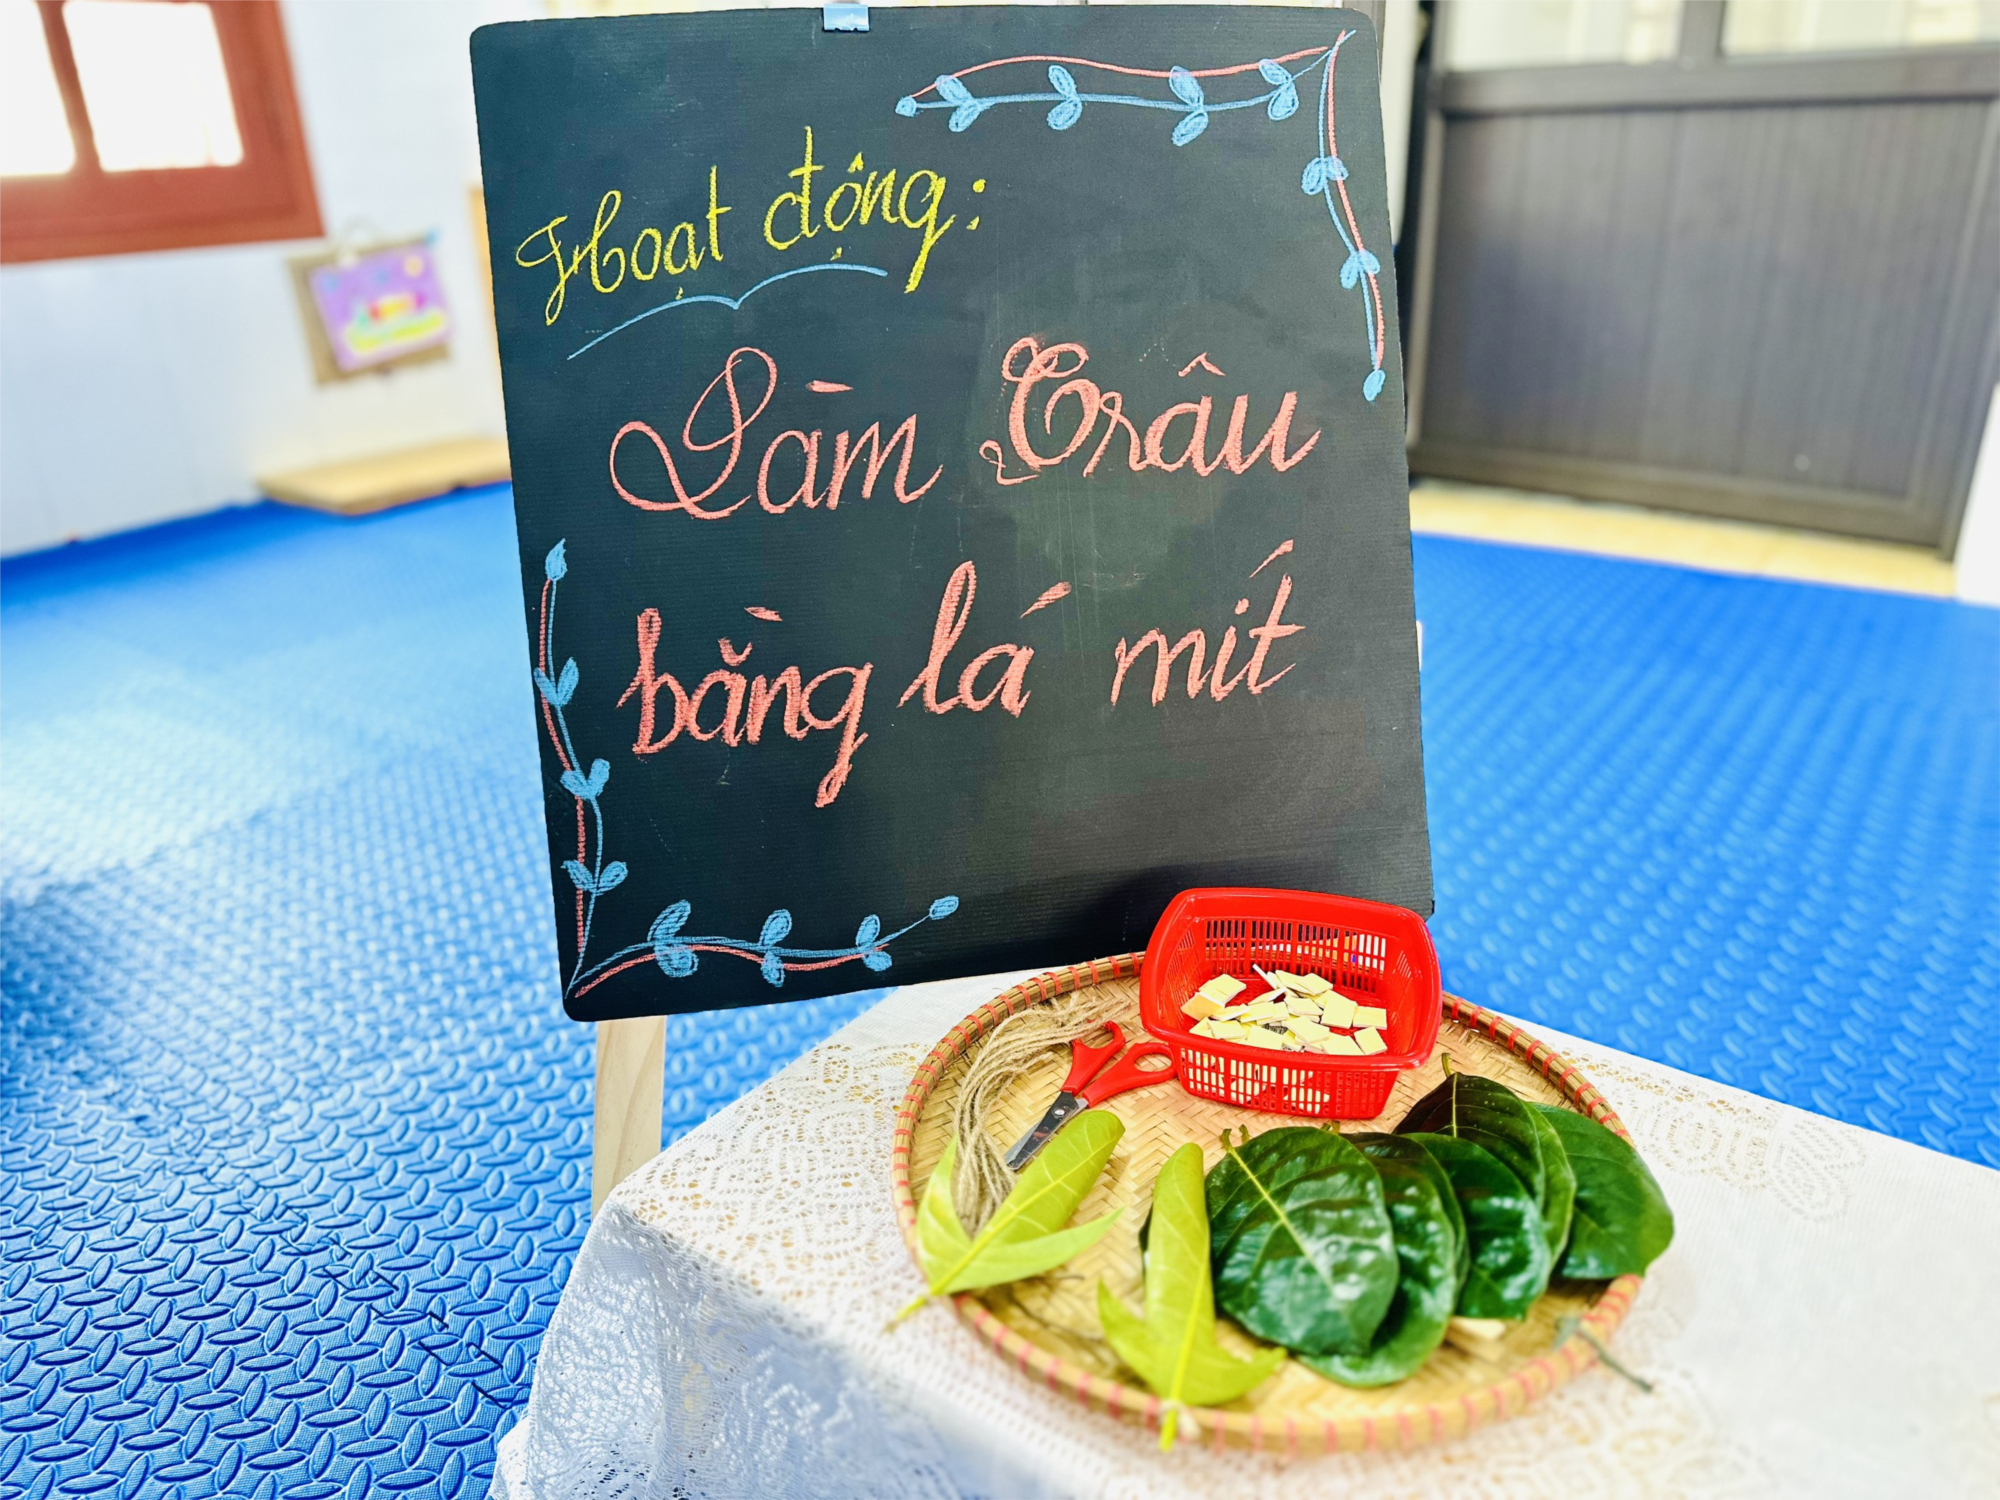 Hoạt động:
Làm Trâu
bằng lá mít